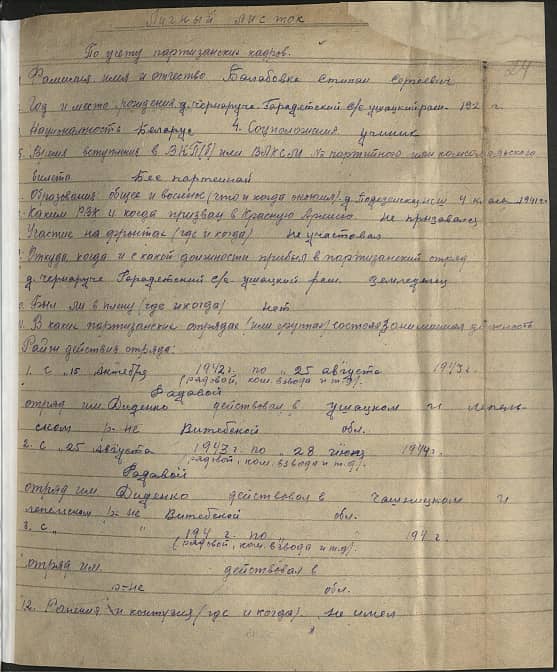 Личный листок
24
По учету партизанских кадров.
Фамилия имя и отчество Балабовка Степан Сергеевич
Год и место рождения д. Черноручье Гарадетский с/с ушацкий раён. 192 г.
Национальность Беларус 4. Соцположения ученик
5. Время вступления в ВКП(б) или ВЛКСМ № партийного или комсомольского
билета Бес партейная
Образования общее и военное (что и когда окончил) 4 клас. 1941 г.
Каким РВК и когда призван в Красную Армию не призавался
Участие на фронтах (где и когда) не участвовал
Откуда, когда и с какой должности прибыл в партизанский отряд
д. Черноручье Гарадетский с/с ушацкий раён. земледелец
Был ли в плену (где и когда) нет
В каких партизанских отрядах (или группах) состоял, занимаемая должность
Район действия отряда:
1. с „15 октебря 1942 г. по „25 августа 1943 г.
(рядовой, ком. взвода и т.д).
Радавой
отряд им. Диденко действовал в ушацком и лепель-
ском р-не Витебской обл.
2. с „25 августа 1943 г. по „28 июня 1944 г.
(рядовой, ком. взвода и т.д).
Радавой
отряд им. Диденко действовал в чашницком и
лепельском р-не Витебской обл.
3. с „ " 194 г. по „ 194 г.
(рядовой, ком. взвода и т.д)
отряд им. действовал в
р-не обл.
12. Ранения и контузия (где и когда). не имел